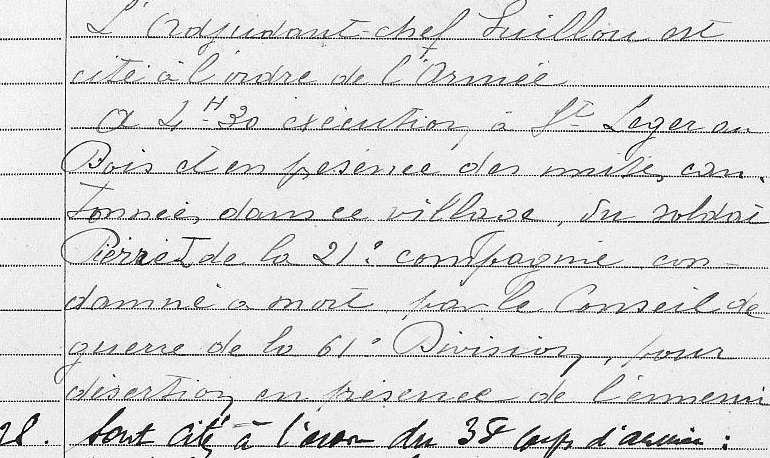 L'Adjudant-chef Guillou est
cité à l'ordre de l'Armée
A 4H30 exécution, à St Leger au
Bois et en présence des unités can-
tonnées dans ce village, du soldat
Pierret de la 21e compagnie con-
damné a mort par le Conseil de
guerre de la 61e Division, pour
désertion en présence de l'ennemi
28. Sont cités à l' du 38 corps d'armée :